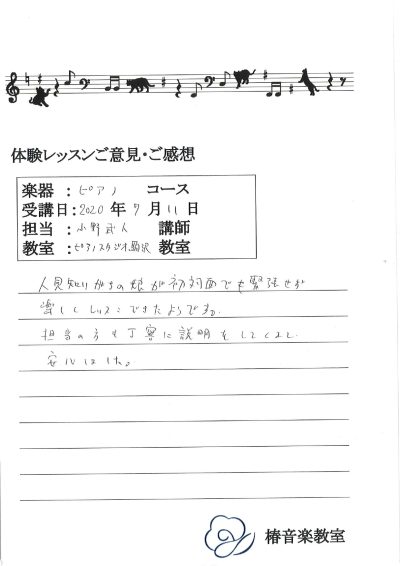 体験レッスンご意見・ご感想
楽器 : ピアノ コース
受講日 : 2020 年 7 月 11 日
担当 : 小野 講師
教室 : ピアノスタジオ駒沢 教室
人見知りがちの娘が初対面でも緊張せず
楽しくレッスンできたようです。
担当の方も丁寧に説明をしてくださり
安心しました。
椿音楽教室